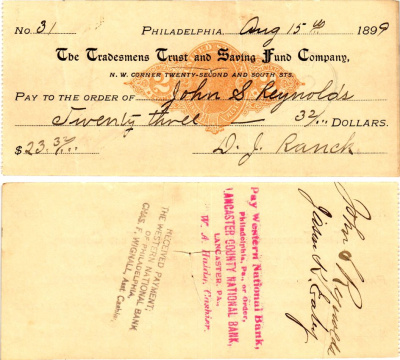 No. 31 PHILADELPHIA, Aug 15 th 1899
The Tradesmens Trust and Saving Fund Company,
N. W. CORNER TWENTY-SECOND AND SOUTH STS.
PAY TO THE ORDER OF John S Reynolds
Twenty three 32/... DOLLARS.
$23.32/... D. J. Ranck
THE RECEIVED PAYMENT:
WESTERN NATIONAL BANK
OF PHILADELPHIA,
CHAS. F. WIGNALL, Asst. Cashier.
Pay Western National Bank,
Philadelphia, Pa., or Order,
LANCASTER COUNTY NATIONAL BANK,
LANCASTER, PA.,
W. A. Cashier.
John S Reynolds
K.